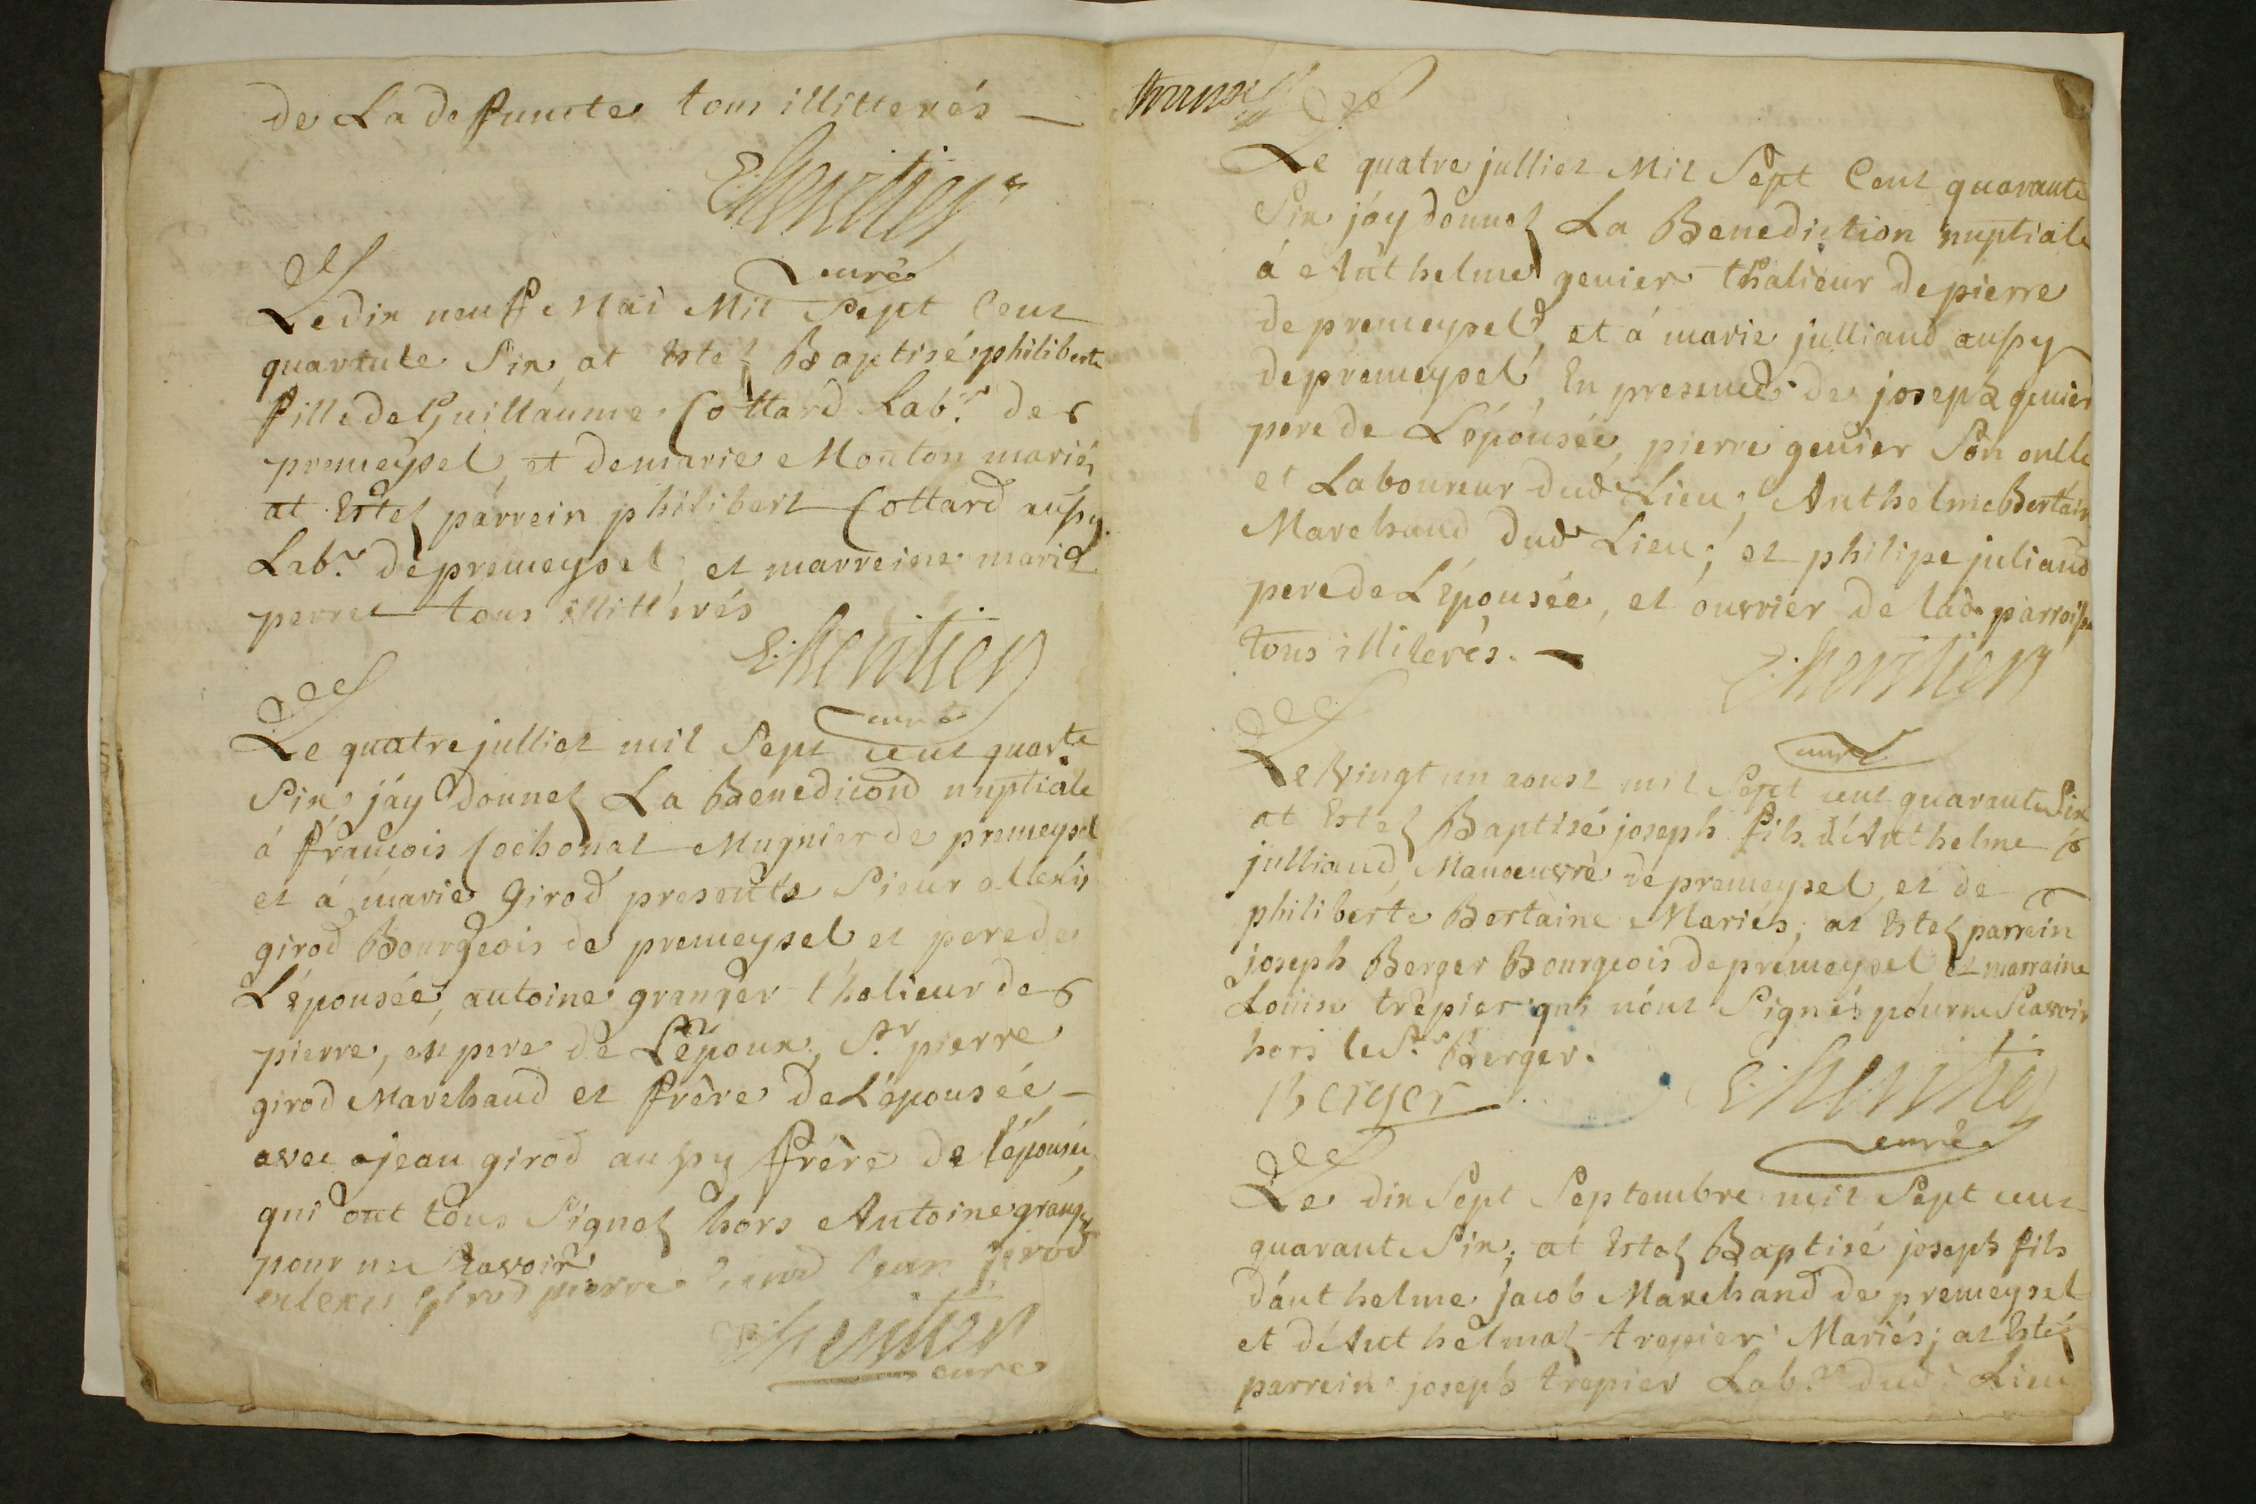 de La defuncte tous illitterés —
E: heritier
curé
Le dix neuf Mai Mil Sept Cent
quarante Six, at Estez Baptisé philiberte
fille de Guillaume Cottard Labr. de
premeysel, et de marie Mouton mariés
at Estez parrein philibert Cottard aussy
Labr. de premeysel, et marreine marie
perret tous illitérés
E: heritier
curé
Le quatre julliet mil Sept cent quarte
Six jáy donnez La Benediction nuptiale
á francois Cochonat Mugnier de premeysel
et á marie Girod presents Sieur allexis
girod Bourgeois de premeysel et pere de
L'épousée, antoine granger thalieur de
pierre, et pere de L'epoux, Sr. pierre
girod Marchand et frère de L'épousée —
avec jean girod aussy frère de l'épousée,
qui ont tous Signez hors Antoine granger
pour ne Scavoir
allexis Girod pierre Jean girod
E: heritier
curé
Le quatre julliet Mil Sept Cent quarante
Six jáy donnez La Benediction nuptiale
á Anthelme genier thalieur de pierre
de premeysel, et á marie julliand aussy
de premeysel, En presence de joseph genier
pere de L'épousée, pierre genier Son oncle
et Laboureur dud Lieu; Anthelme Bertain
Marchand dud Lieu; et philipe juliand
pere de L'épousée, et ouvrier de lad parroisse
tous illiterés. —
E: heritier
curé
Le Vingt un aoust mil Sept cent quarante Six
at Estez Baptisé joseph fils d'Anthelme
julliand Manoeuvre de premeysel, et de
philiberte Bertaine Mariés; at Estez parrein
joseph Berger Bourgeois de premeysel et marraine
Loüise trepier qui n'ont Signés pour ne Scavoir
hors le Sr. Berger.
Berger
E: heritier
curé
Le dix Sept Septembre mil Sept cent
quarante Six, at Estez Baptisé joseph fils
d'ánthelme jacob Marchand de premeysel
et d'Anthelmaz trepier Mariés; at Estéz
parrein joseph trepier Labr. dud Lieu